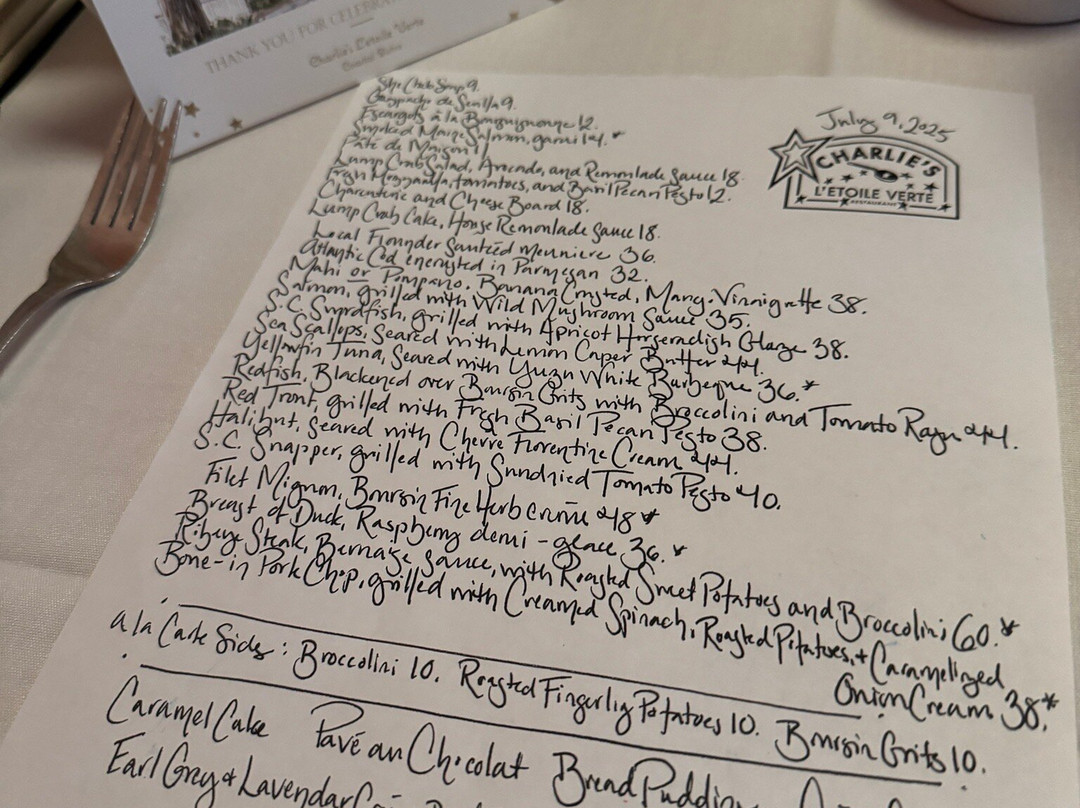 THANK YOU FOR CELEBRA
Charlie's L'etoile Verte
July 9, 2025
CHARLIE'S
L'ETOILE VERTE
RESTAURANT
She Crab Soup 9.
Gazpacho de Sevilla 9.
Escargots à la Bourguignonne 12.
Smoked Maine Salmon, garni 14. *
Pâte de Maison 11
Lump Crab Salad, Avocado, and Remoulade Sauce 18.
Fresh Mozzarella, tomatoes, and Basil Pecan Pesto 12.
Charcuterie and Cheese Board 18.
Lump Crab Cake, House Remoulade Sauce 18.
Local Flounder Sautéed Meuniere 36.
Atlantic Cod encrusted in Parmesan 32.
Mahi or Pompano, Banana Crusted, Mang. Vinaigrette 38.
Salmon, grilled with Wild Mushroom Sauce 35.
S.C. Swordfish, grilled with Apricot Horseradish Glaze 38.
Sea Scallops, Seared with Lemon Caper Butter 44.
Yellowfin Tuna, Seared with Yuzu White Barbeque 36. *
Redfish, Blackened over Boursin Grits with Broccolini and Tomato Ragu 44.
Red Trout, grilled with Fresh Basil Pecan Pesto 38.
Halibut, Seared with Chevre Florentine Cream 44.
S.C. Snapper, grilled with Sundried Tomato Pesto 40.
Filet Mignon, Boursin Fine Herb crème 48 *
Breast of Duck, Raspberry demi-glace 36. *
Ribeye Steak, Bernaise Sauce, with Roasted Sweet Potatoes and Broccolini 60. *
Bone-in Pork Chop, grilled with Creamed Spinach, Roasted Potatoes, + Caramelized
Onion Cream 38. *
a la Carte Sides: Broccolini 10. Roasted Fingerling Potatoes 10. Boursin Grits 10.
Caramel Cake Pavé au Chocolat Bread Pudding
Earl Grey & Lavendar